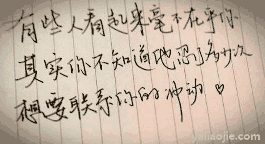 有些人看起来毫不在乎你
其实你不知道他忍了多少次
想要联系你的冲动♡
yuliaojie.com